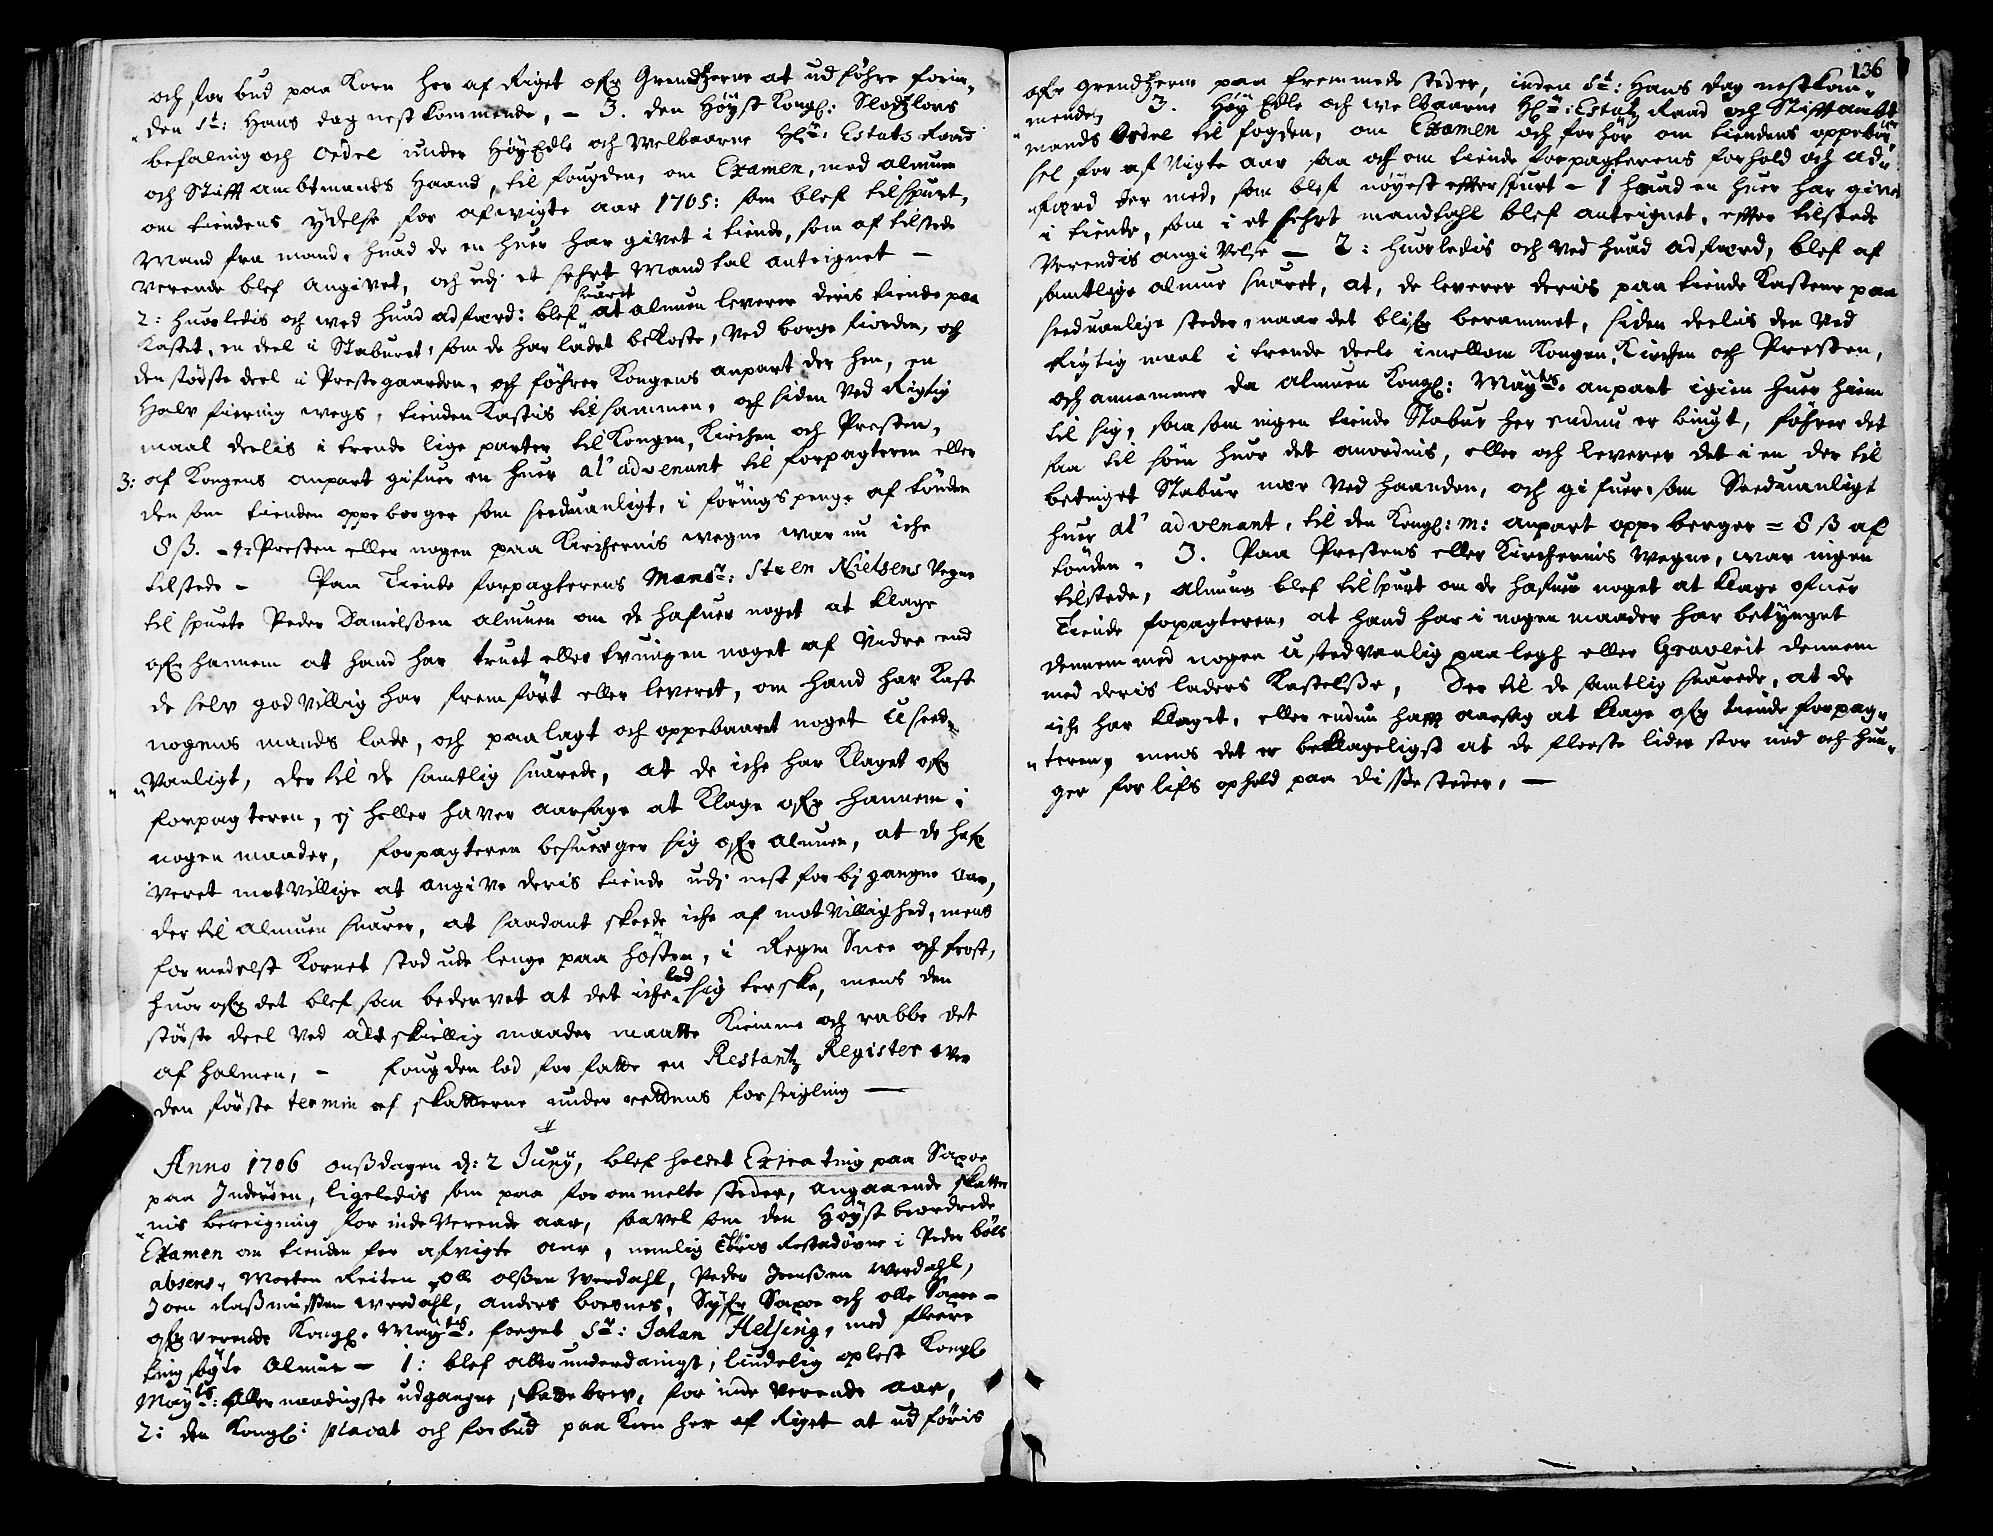 och for bud paa Korn her af Riget ofr Grendtzerne at udføhre forin¬
"den St: Hans dag nest kommende, - 3. den Høyst Kongl: Slodtzlovs
befaling och Ordel under HøyEdle och Welbaarne Hr: Estats Raad
och Stiftambtmands Haand, til fougden, om Examen, med almuen
om tiendens ydelse for afvigte aar 1705: som blef tilspurt,
Mand fra mand, huad de en huer har givet i tiende, som af tilstede
verende blef angivet, och udj et sehrt Mandtal anteignet -
2: huorledis och med huad adfærd: blef suaret at almuen leverer deris tiende paa
Kastet, en deel i Staburet, som de har ladet bekoste, Ved borge fiorden, och
den største deel i Prestegaarden, och føhrer Kongens anpart der hen, en
Halv fiering wegs, tienden Kastis tilsammen, och siden Ved Rigtig
maal deelis i trende lige parter til Kongen, Kirchen och Presten,
3: af Kongens anpart gifuer en huer al' advenant til forpagteren eller
den som tienden oppeberger som sædvanligt, i førings penge af tønden
8 ß. - 4: Presten eller nogen paa Kirchernis wegne war nu iche
tilstede - Paa Tiende forpagterens Monsr: Steen Nielsens Vegne
tilspurte Peder Danielßen almuen om de hafuer noget at klage
ofr hannem at hand har truet eller tvungen noget af Videre end
de selv godvillig har fremført eller leveret, om hand har Kast
nogens mands lade, och paalagt och oppebaaret noget U sæd¬
"vanligt, der til de samtlig suarede, at de iche har Klaget ofr
forpagteren, ej heller haver aarsage at Klage ofr hannem i
nogen maader, forpagteren besuerger sig ofr almuen, at de hafr
veret motvillige at angive deris tiende udj nest forbj gangne aar,
der til almuen suarer, at saadant skeede iche af motvillighed, mens
formedelst Kornet stod ude lenge paa høsten, i Regn Snee och frost,
huor ofr det blef saa bedervet at det iche lod sig terske, mens den
største deel Ved alt skillig maader maatte Kiemme och rabbe det
af halmen, - fougden lod forfatte en Restantz Register over
den første termin af skatterne under rettens forseigling -
Anno 1706 onßdagen d: 2 Junij, blef holdet Extra ting paa Saxoe
paa Inderøen, ligeledis som paa forommelte steder, angaaende skatter
"nis bereigning for inde Verende aar, saavel som den Høyst beordrede
Examen om tienden for afvigte aar, nemlig Tøris i Peder bøls
absens, Morten Reiten Olle olßen Werdahl, Peder Joenßen Werdahl,
Joen Raßmußen Werdahl, anders borsnes, Syfr Saxoe och olle Saxoe -
ofr verende Kongl. Mayts. foiget Sr: Johan Helsing, med fleere
ting søgte Almue - 1: blef allerunderdanigst, liudelig oplest Kongl
Mayts: Allernaadigste udgangne skattebrev, for inde Verende aar,
2: den Kongl: placat och forbud paa Korn her af Riget at udføris
136
ofr grendtzerne paa fremmede steder, inden St: Hans dag nestkom¬
mende, 3. Høy Edle och Welbaarne Hr: Estatz Raad och Stifft ambt
"mands Ordel til fogden, om Examen och forhør om tiendens oppebør¬
sel for afvigte aar saa och om tiende forpagterens forhold och ad¬
"færd der med, som blef nøyest efterspurt - 1 huad en huer har givet
i tiende, som i et sehrt mandtahl blef anteignet, efter tilstede
Verendis angiVelse - 2: huorledis och Ved huad adfærd, blef af
samtlige almue suaret, at, de leverer deris paa tiende Kastene paa
sæduanlige steder, naar det blifr berammet, siden deelis den Ved
Rigtig maal i trende deele imellom Kongen, Kirchen och Presten,
och annammer da almuen Kongl: Mayts. anpart igien huer hiem
til sig, saa som ingen tiende Stabur her endnu er bingt, føhrer det
saa til søen huor det anordnis, eller och leverer det i en der til
betinget Stabur nær Ved haanden, och gifuer, som Sæduanligt
huer al' advenant, til den Kongl: M: anpart oppeberger = 8 ß af
tønden. 3. Paa Prestens eller Kirchernis Wegne, war ingen
tilstede, almuen blef tilspurt om de hafuer noget at klage ofuer
Tiende fopagteren, at hand har i nogen maader har betynget
dennem med nogen U sædvanlig paalegh eller Graverit dennem
med deris laders Kastelße, Der til de samtlig suarede, at de
iche har klaget, eller endnu haffr aarsag at klage ofr tiende forpag¬
"teren, mens det er beklageligst at de fleeste lider stor nød och hun¬
ger for lifs ophold paa disse steder, -